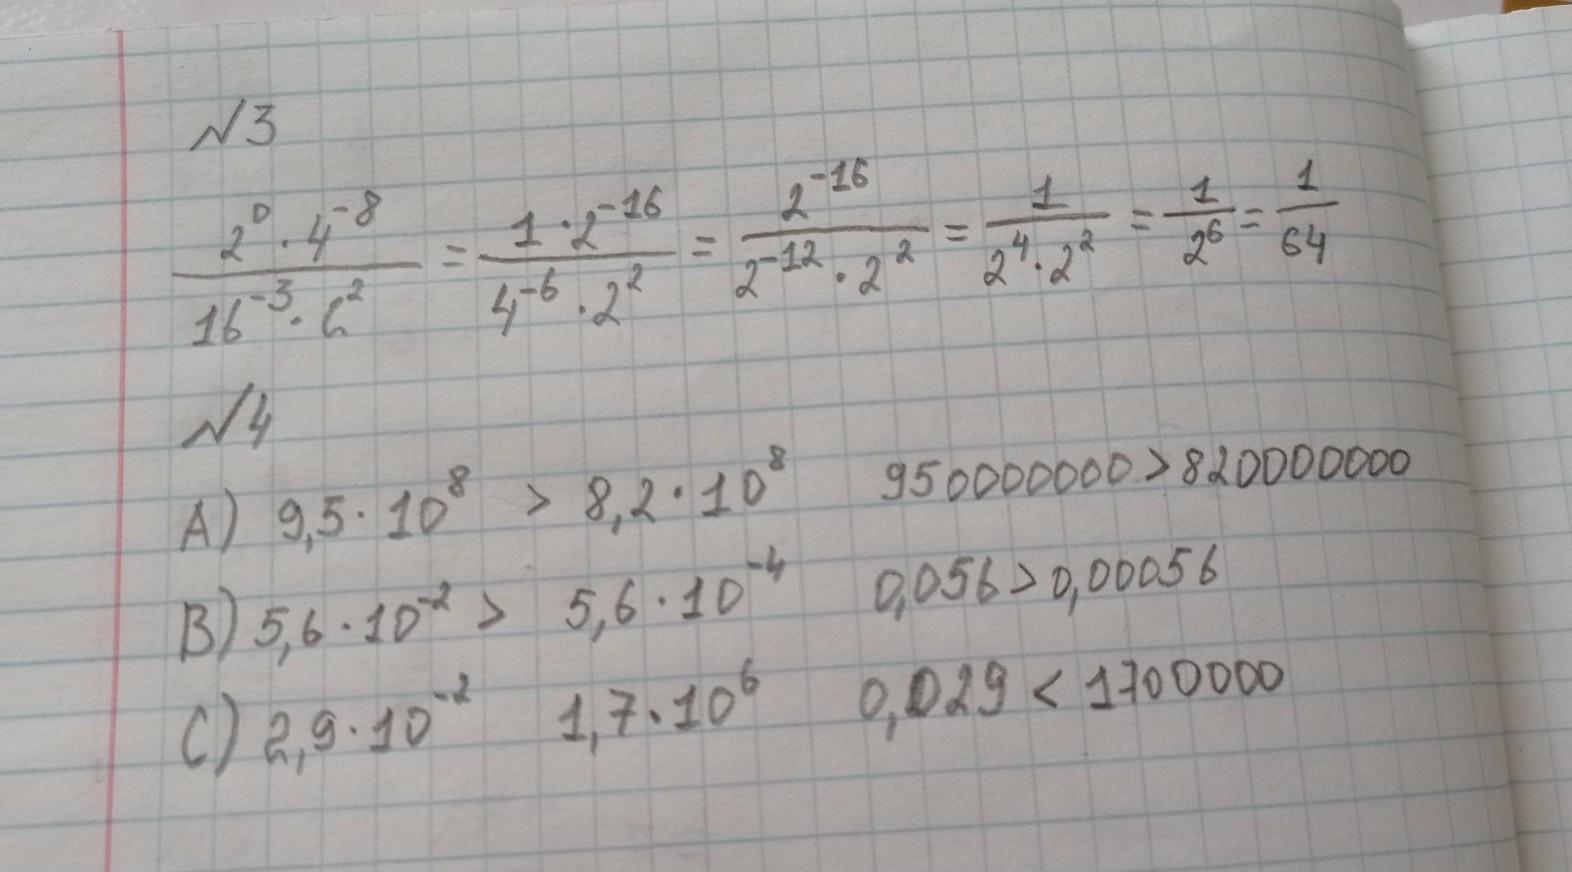 №3
2⁰ · 4⁻⁸ / 16⁻³ · 2² = 1 · 2⁻¹⁶ / 4⁻⁶ · 2² = 2⁻¹⁶ / 2⁻¹² · 2² = 1 / 2⁴ · 2² = 1 / 2⁶ = 1 / 64
№4
A) 9,5 · 10⁸ > 8,2 · 10⁸ 950000000 > 820000000
B) 5,6 · 10⁻² > 5,6 · 10⁻⁴ 0,056 > 0,00056
C) 2,9 · 10⁻² 1,7 · 10⁶ 0,029 < 1700000